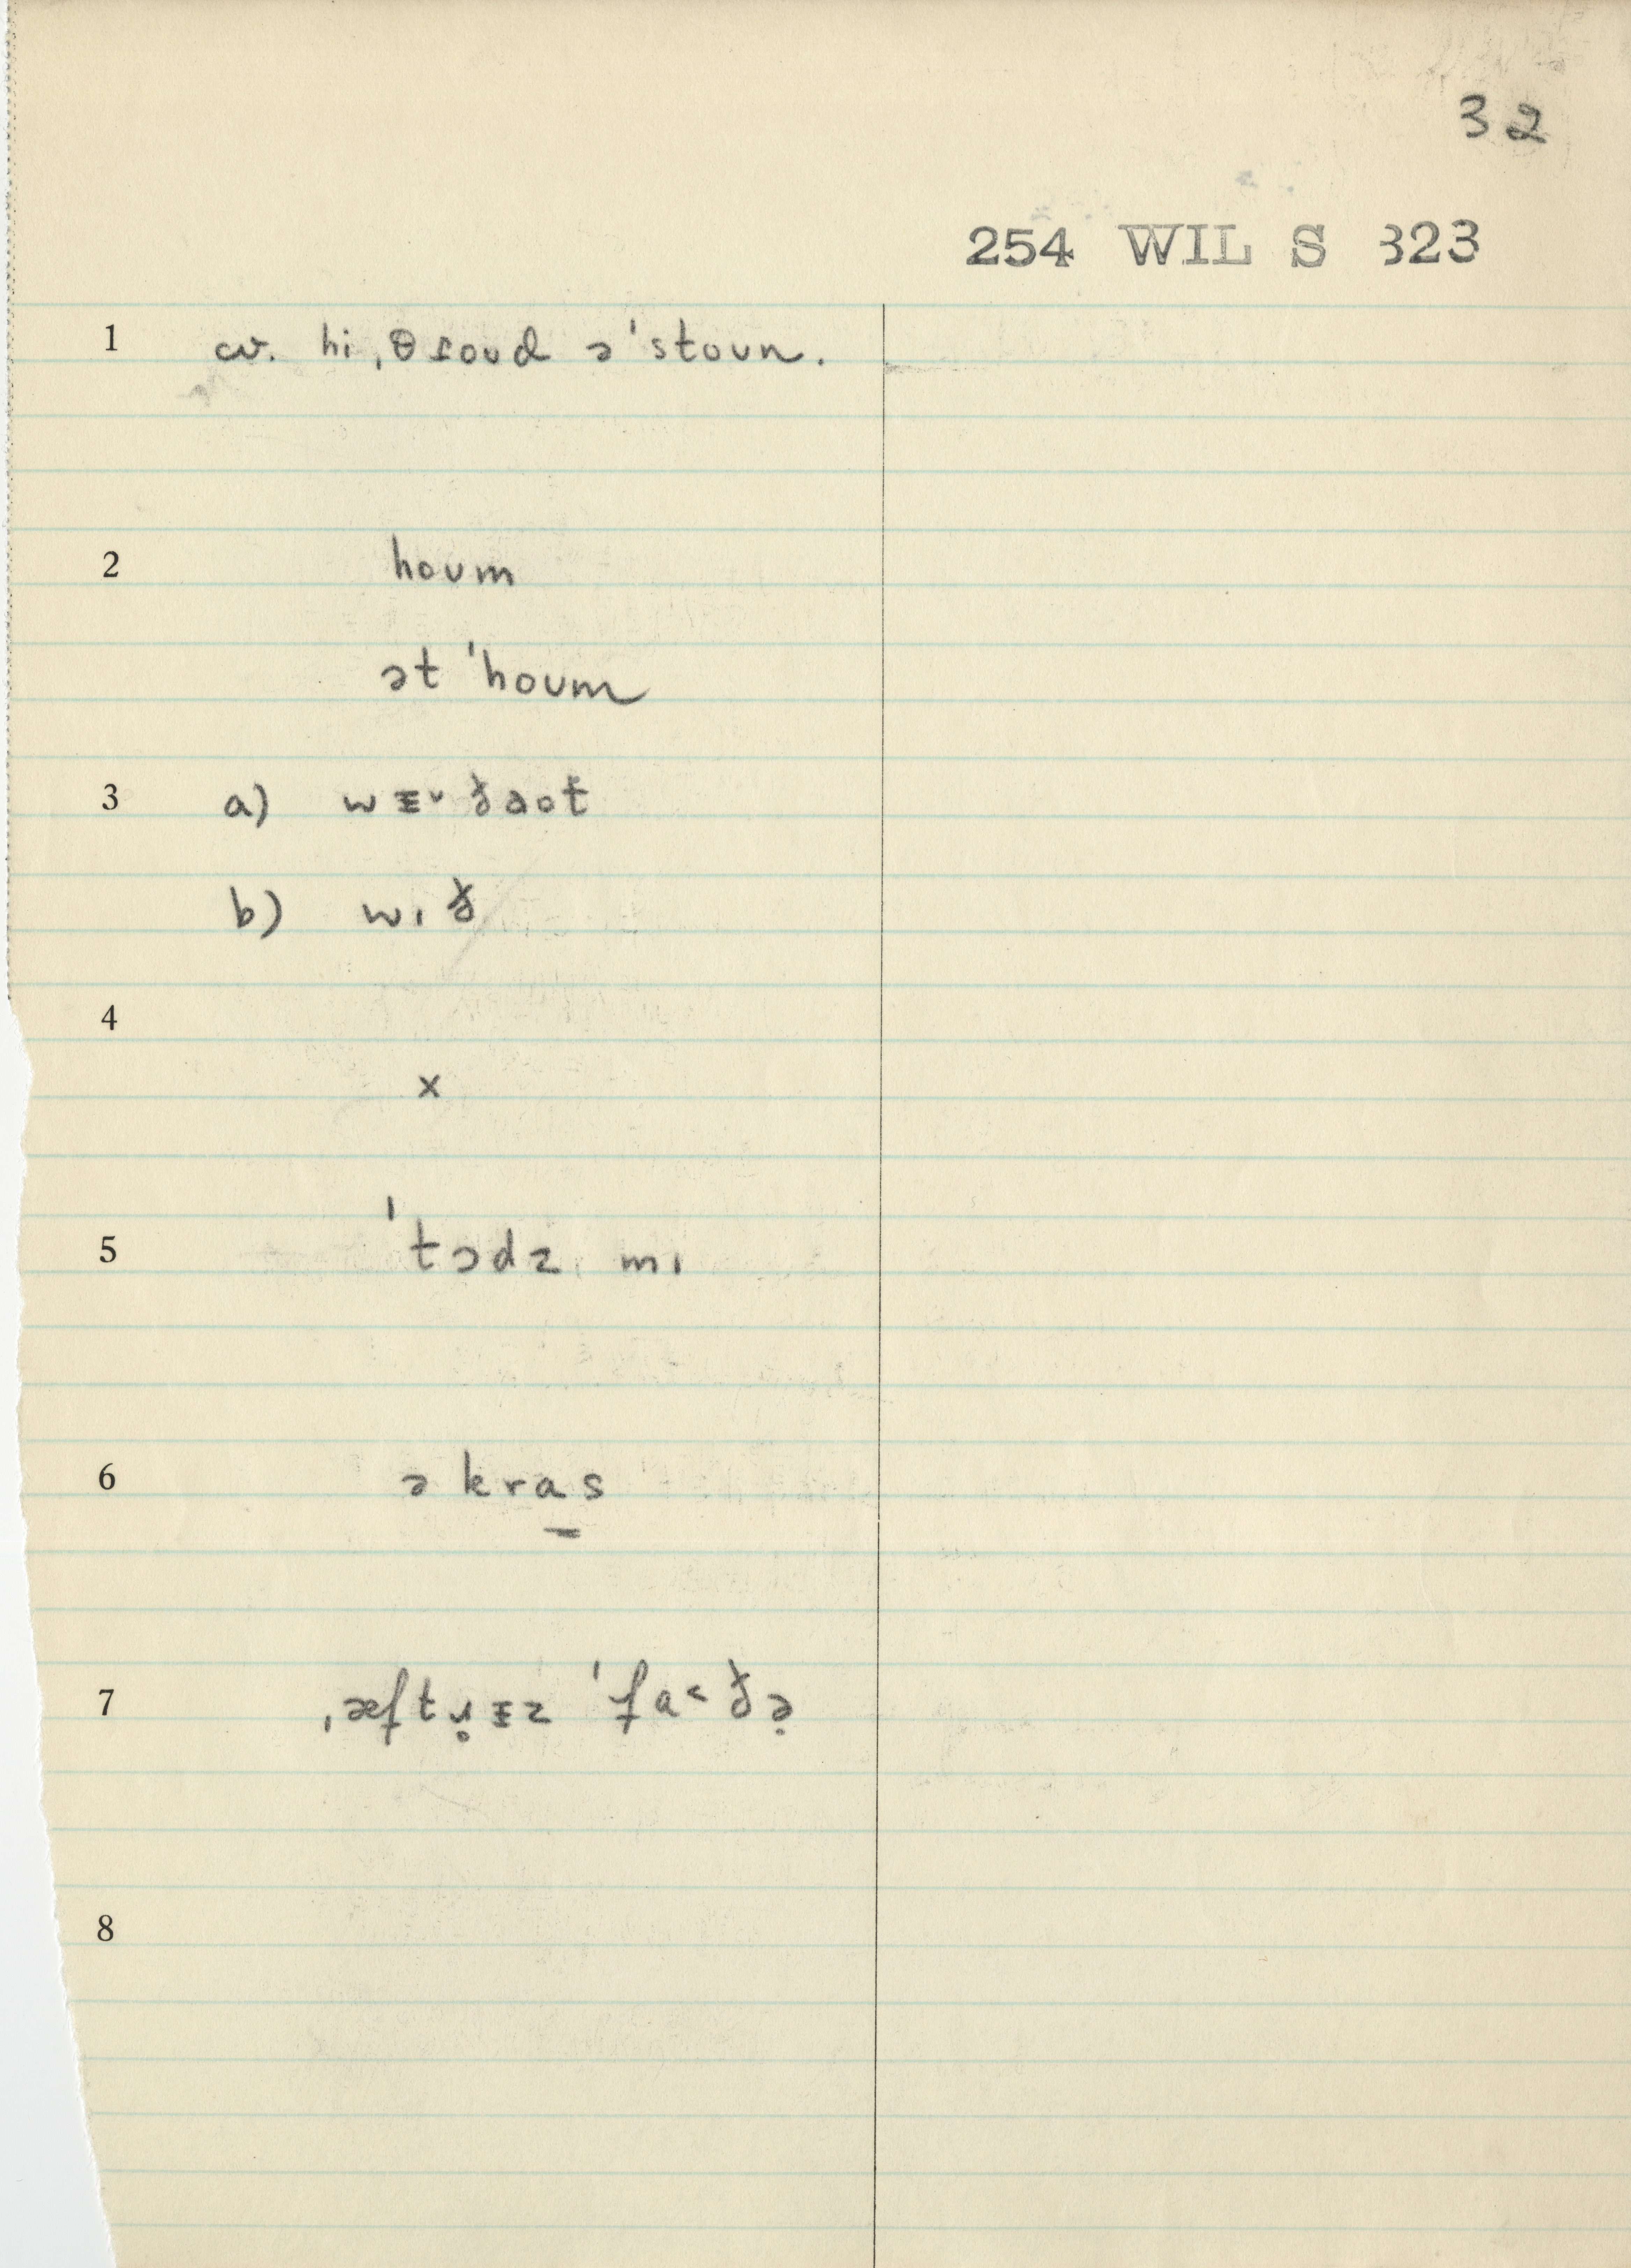 32
254 WIL S 323
1 cv. hi ˌθɾoud ə ˈstoun.
2 houm
ət ˈhoum
3 a) wᵻ˅ðaot
b) wɪð
4
×
5 ˈtɔdz mɪ
6 ə kra̲s
7 ˌæftɹ̥ᵻz ˈfa˂ðə̣
8